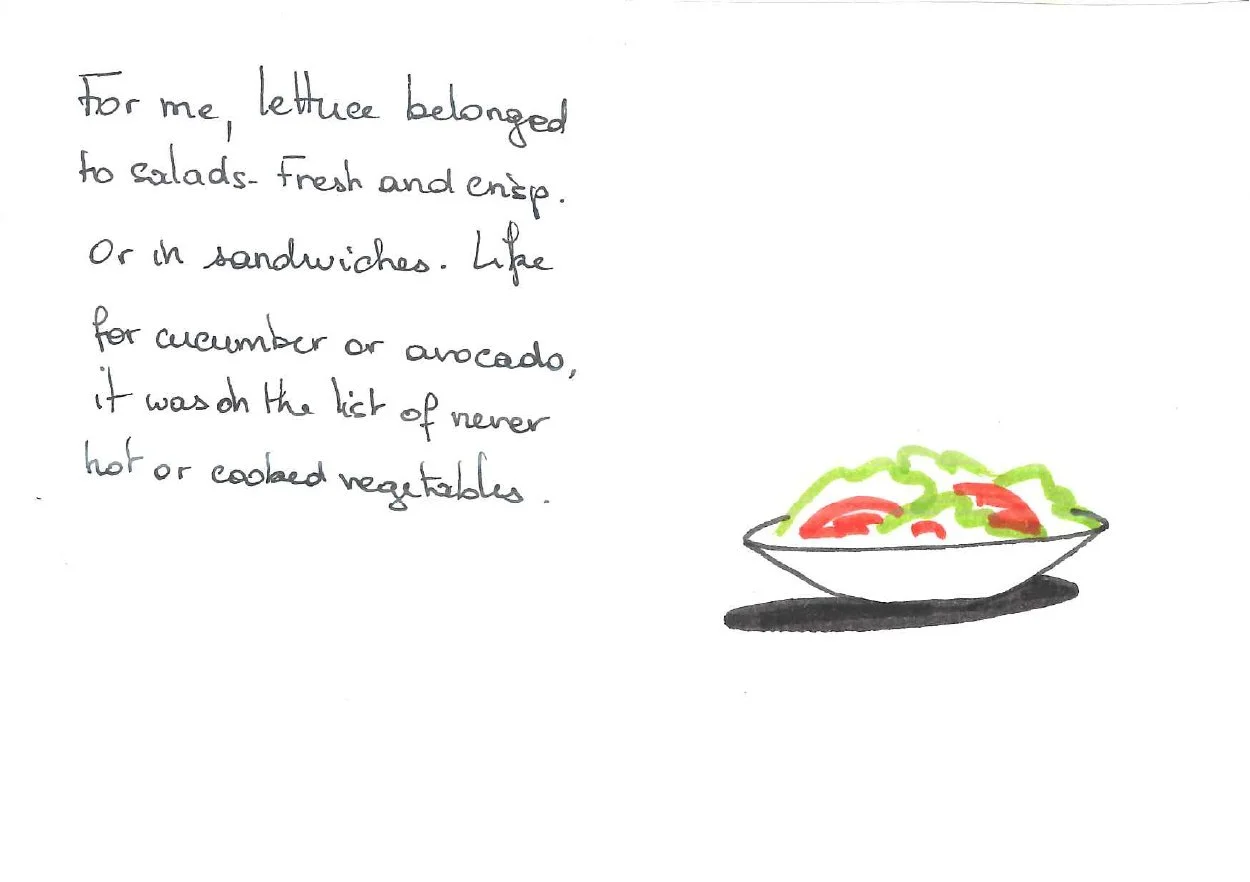 For me, lettuce belonged
to salads- Fresh and crisp.
Or in sandwiches. Like
for cucumber or avocado,
it was on the list of never
hot or cooked vegetables.